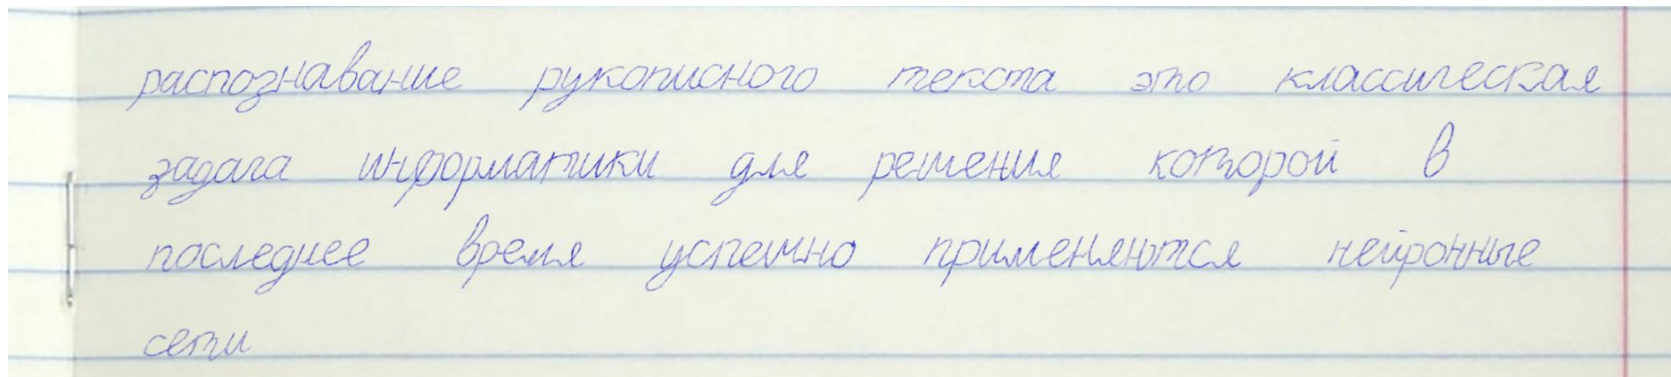 распознавание рукописного текста это классическая
задача информатики для решения которой в
последнее время успешно применяются нейронные
сети